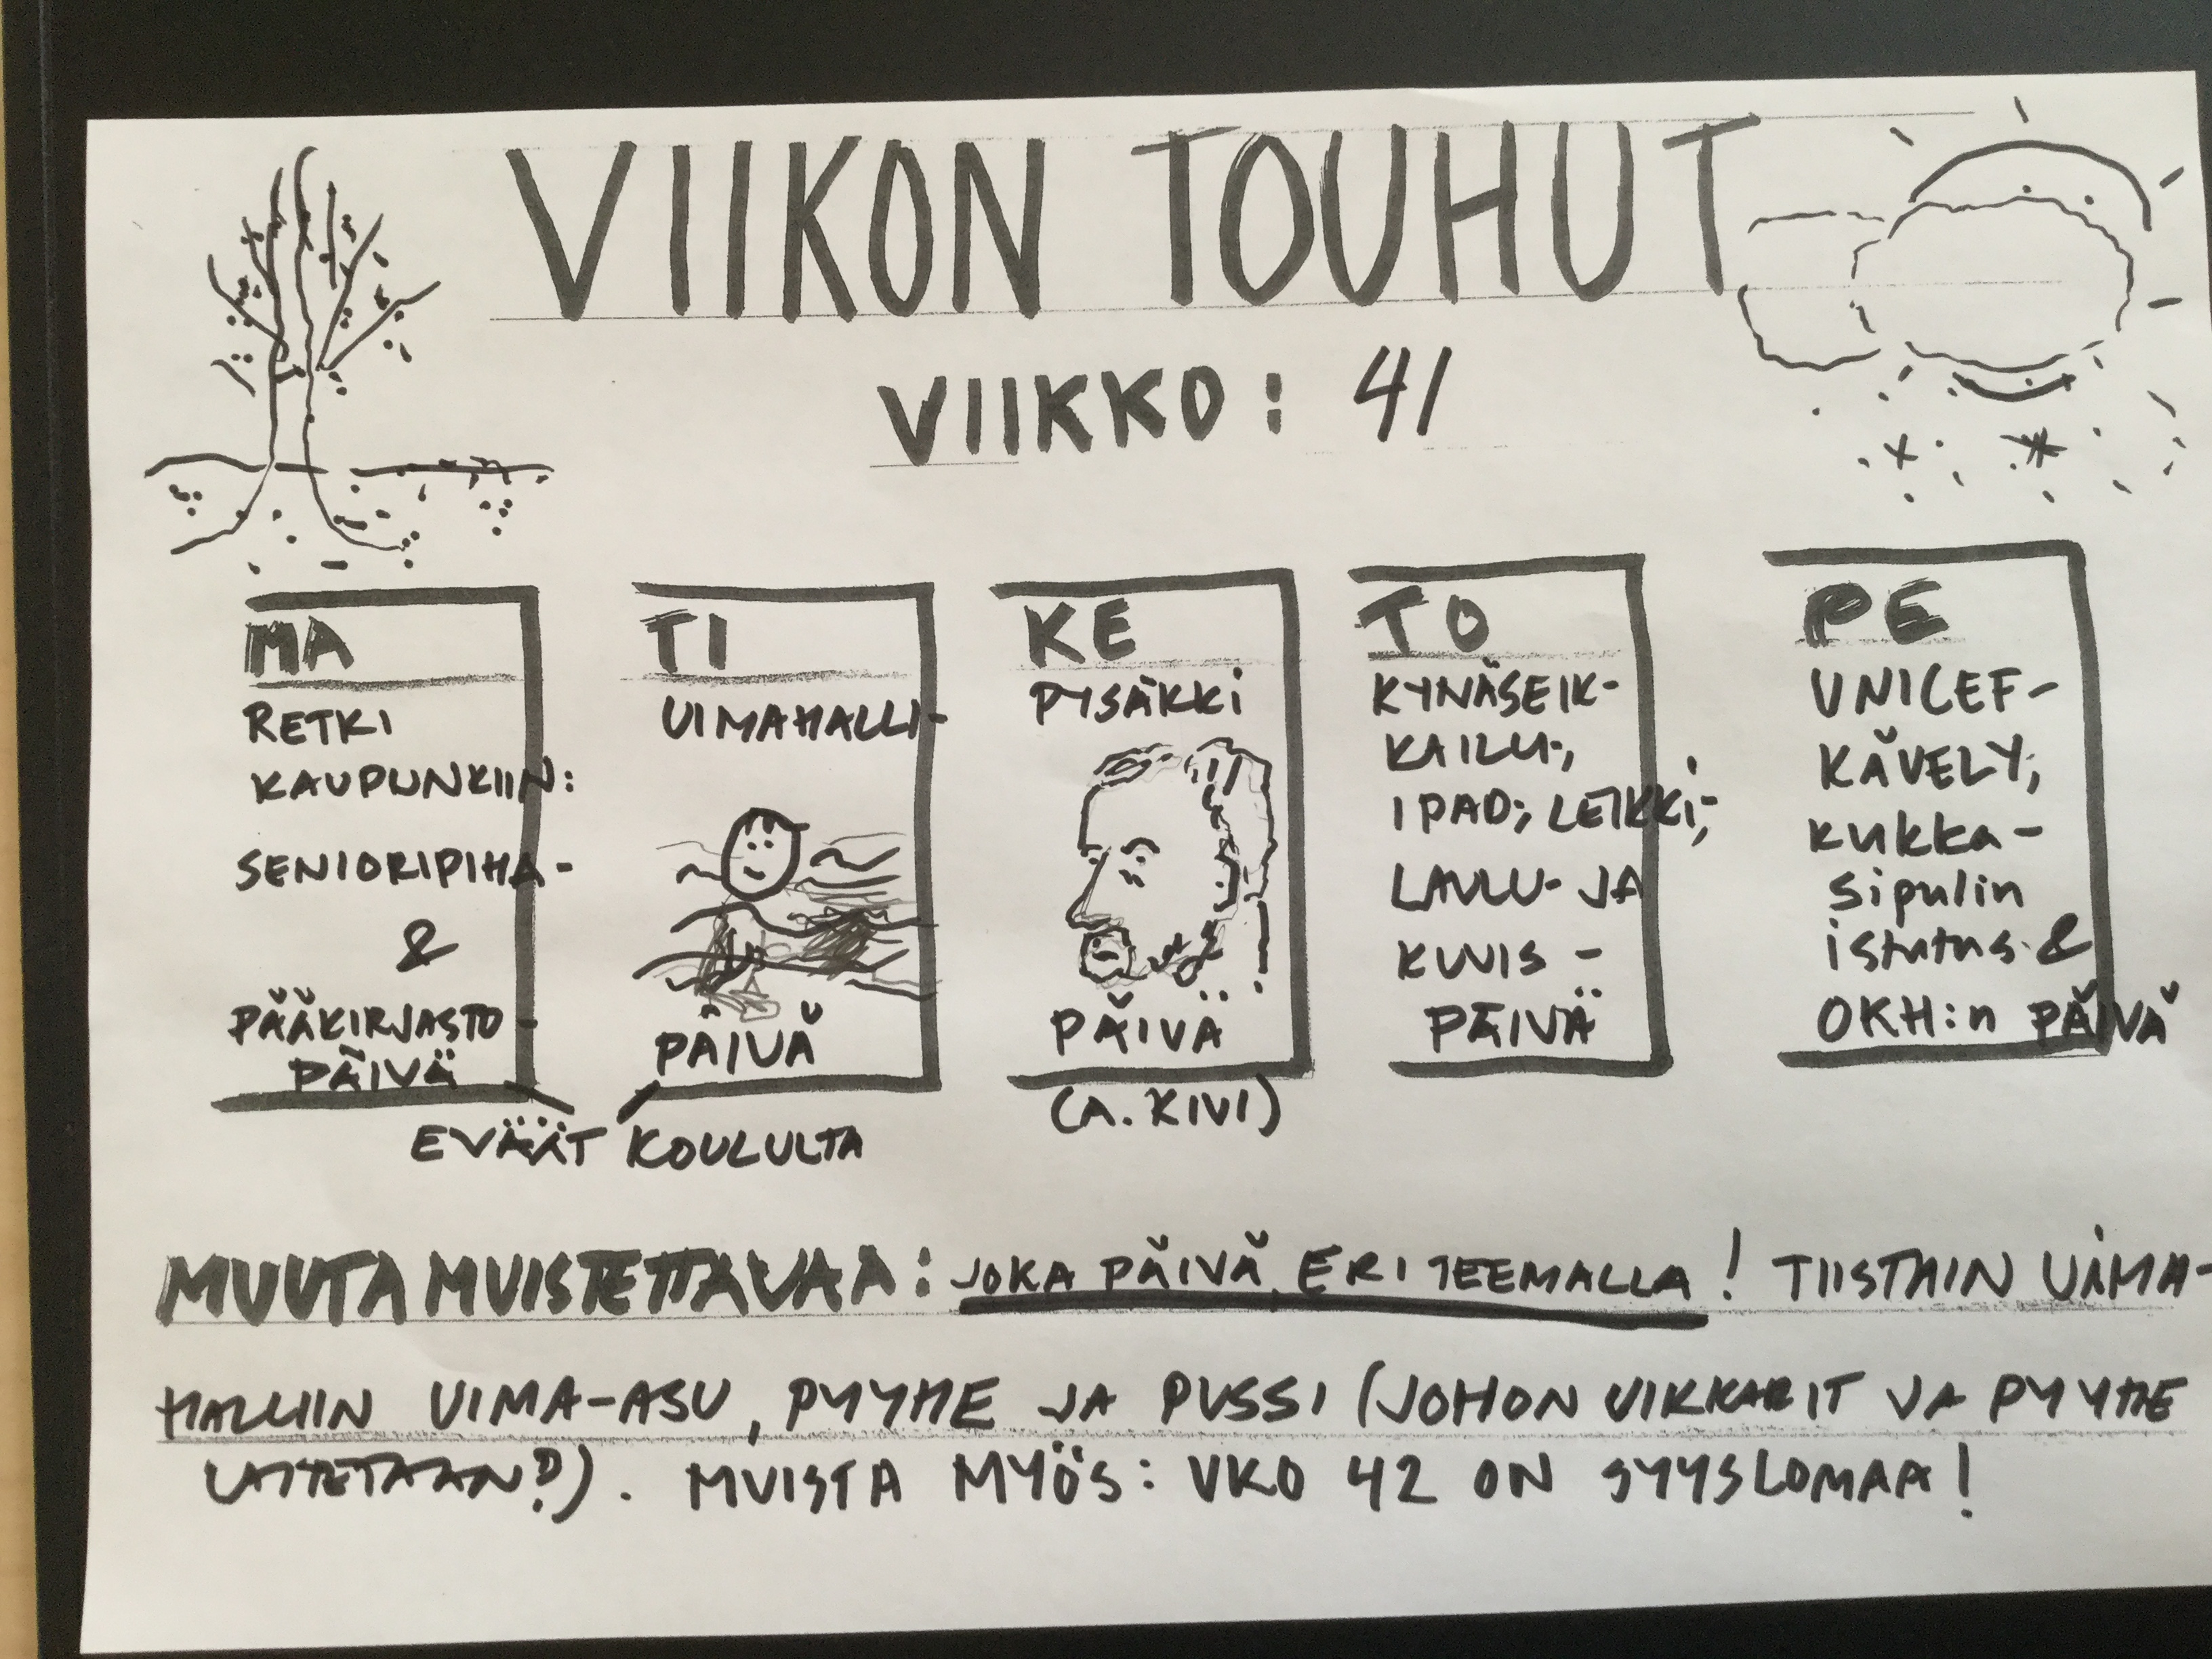 VIIKON TOUHUT
VIIKKO: 41
MA
RETKI
KAUPUNKIIN:
SENIORIPIHA-
&
PÄÄKIRJASTO-
PÄIVÄ
TI
UIMAHALLI-
PÄIVÄ
EVÄÄT KOULULTA
KE
PYSÄKKI
PÄIVÄ
(A. KIVI)
TO
KYNÄSEIK-
KAILU-,
IPAD-, LEIKKI-,
LAULU- JA
KUVIS-
PÄIVÄ
PE
UNICEF-
KÄVELY,
KUKKA-
sipulin
istutus &
OKH:n PÄIVÄ
MUUTA MUISTETTAVAA: JOKA PÄIVÄ ERI TEEMALLA! TIISTAIN UIMA-
HALLIIN UIMA-ASU, PYYHE JA PUSSI (JOHON UIKKARIT JA PYYHE
LAITETAAN?). MUISTA MYÖS: VKO 42 ON SYYSLOMAA!